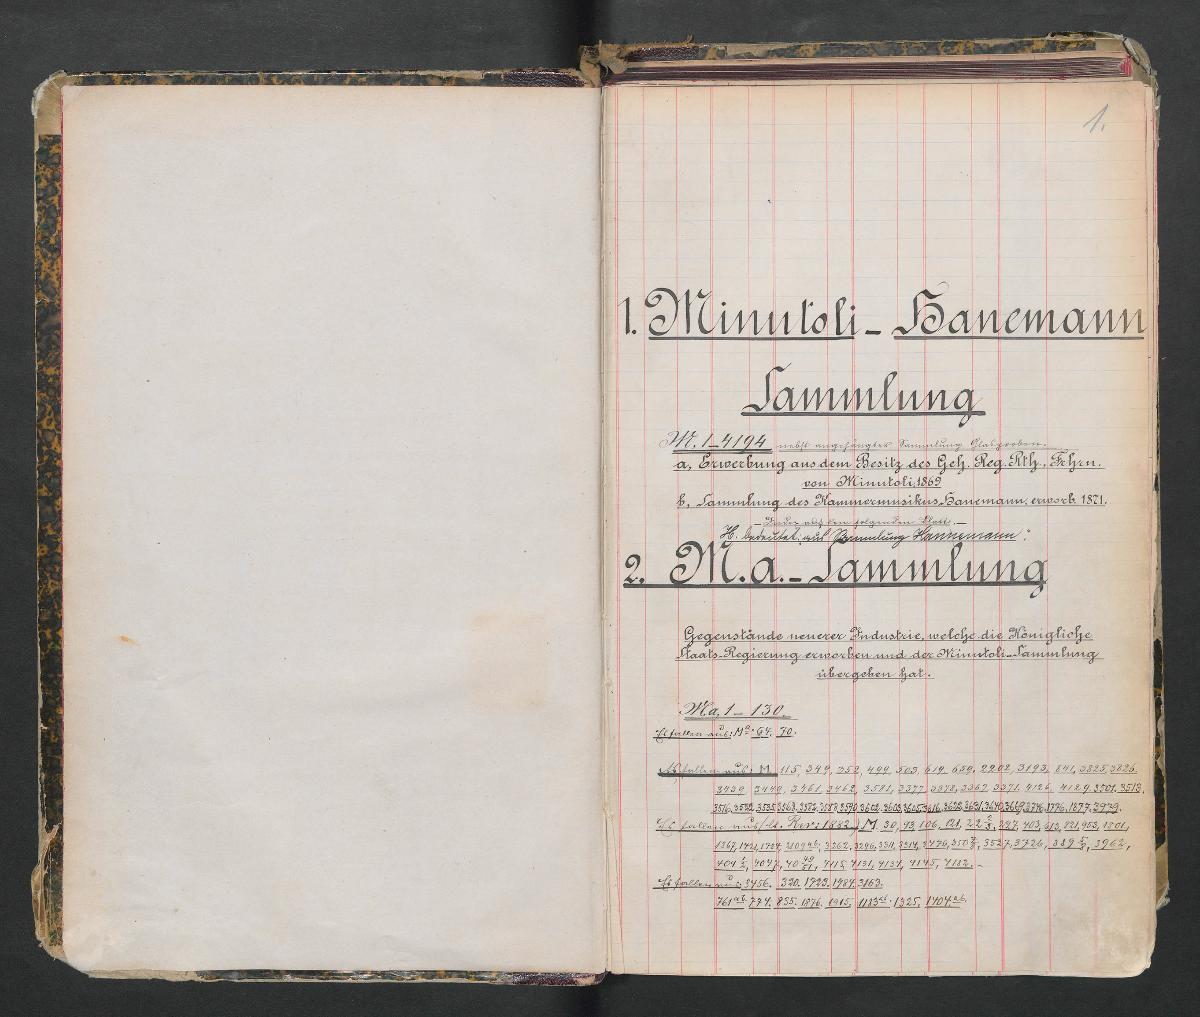 1.
1. Minutoli - Hanemann
Sammlung
M. 1-4194 nebst angehängter Sammlung Glasproben.
a, Erwerbung aus dem Besitz des Geh. Reg. Rth., Frhrn.
von Minutoli, 1869
b, Sammlung des Kammermusikus Hanemann, erworb. 1871.
folgenden Blatt. -
H. bedeutet: aus Sammlung Hannemann:
2. M.a. - Sammlung
Gegenstände neuerer Industrie, welche die Königliche
Staats-Regierung erworben und der Minutoli-Sammlung
übergeben hat.
Ma, 1 - 130
Es fallen aus: Ma. 64. 70.
Es fallen aus: M 115, 349, 352, 499, 503, 619, 659, 2202, 3193, 841, 3825, 3826
3439, 3449, 3461, 3462, 3581, 3377, 3378, 3367, 3371, 4126, 4129, 3701, 3513,
3516, 3532, 3535, 3563, 3582, 3588, 3590, 3602, 3603, 3605, 3616, 3622, 3631, 3640, 3669, 3746, 1776, 1877, 3939.
Es fallen aus (lt. Rev: 1882) M 30, 93, 106, 121, 247, 403, 613, 821, 953, 1801,
1367, 1421, 1724, 2109 ab, 3262, 3296, 3311, 3314, 3476, 3527, 3726, 3962,
4047, 4115, 4131, 4134, 4145, 4182. -
Es fallen aus: 3456. 320. 1723. 1784. 3163.
761 ab. 774. 835. 1876. 1915. 1183 1325. 1404. ab.